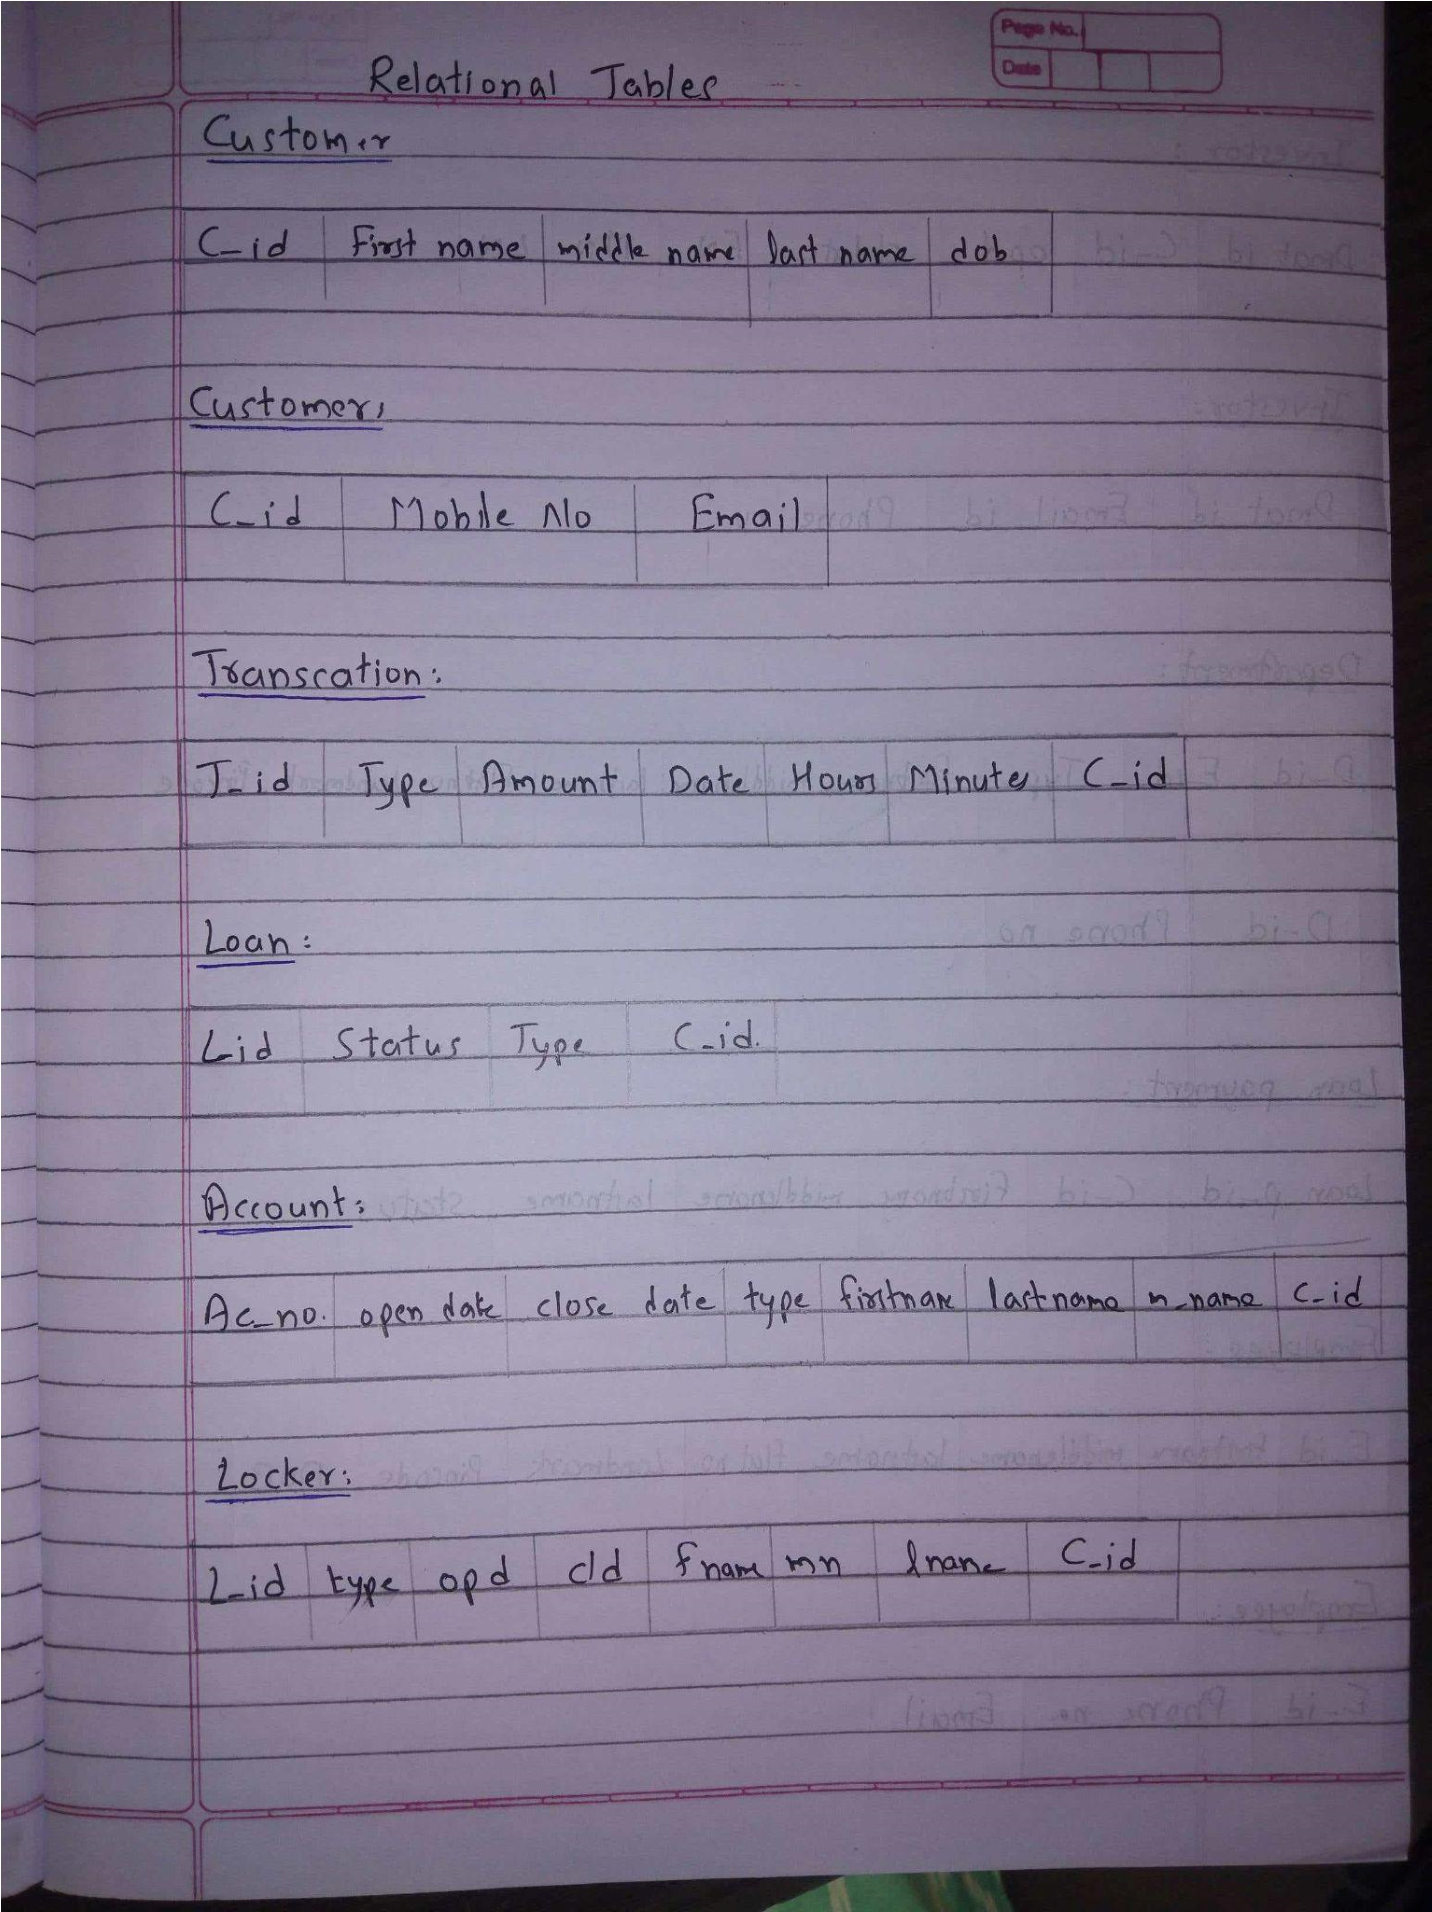 Page No.
Date
Relational Tables
Customer
C_id First name middle name last name dob
Customer,
C_id Mobile No Email
Transcation:
T_id Type Amount Date Hours Minute C_id
Loan:
Lid Status Type C_id.
Account:
Ac_no. open date close date type firstname lastname m_name C_id
Locker:
L_id type opd cld fname mn lname C_id